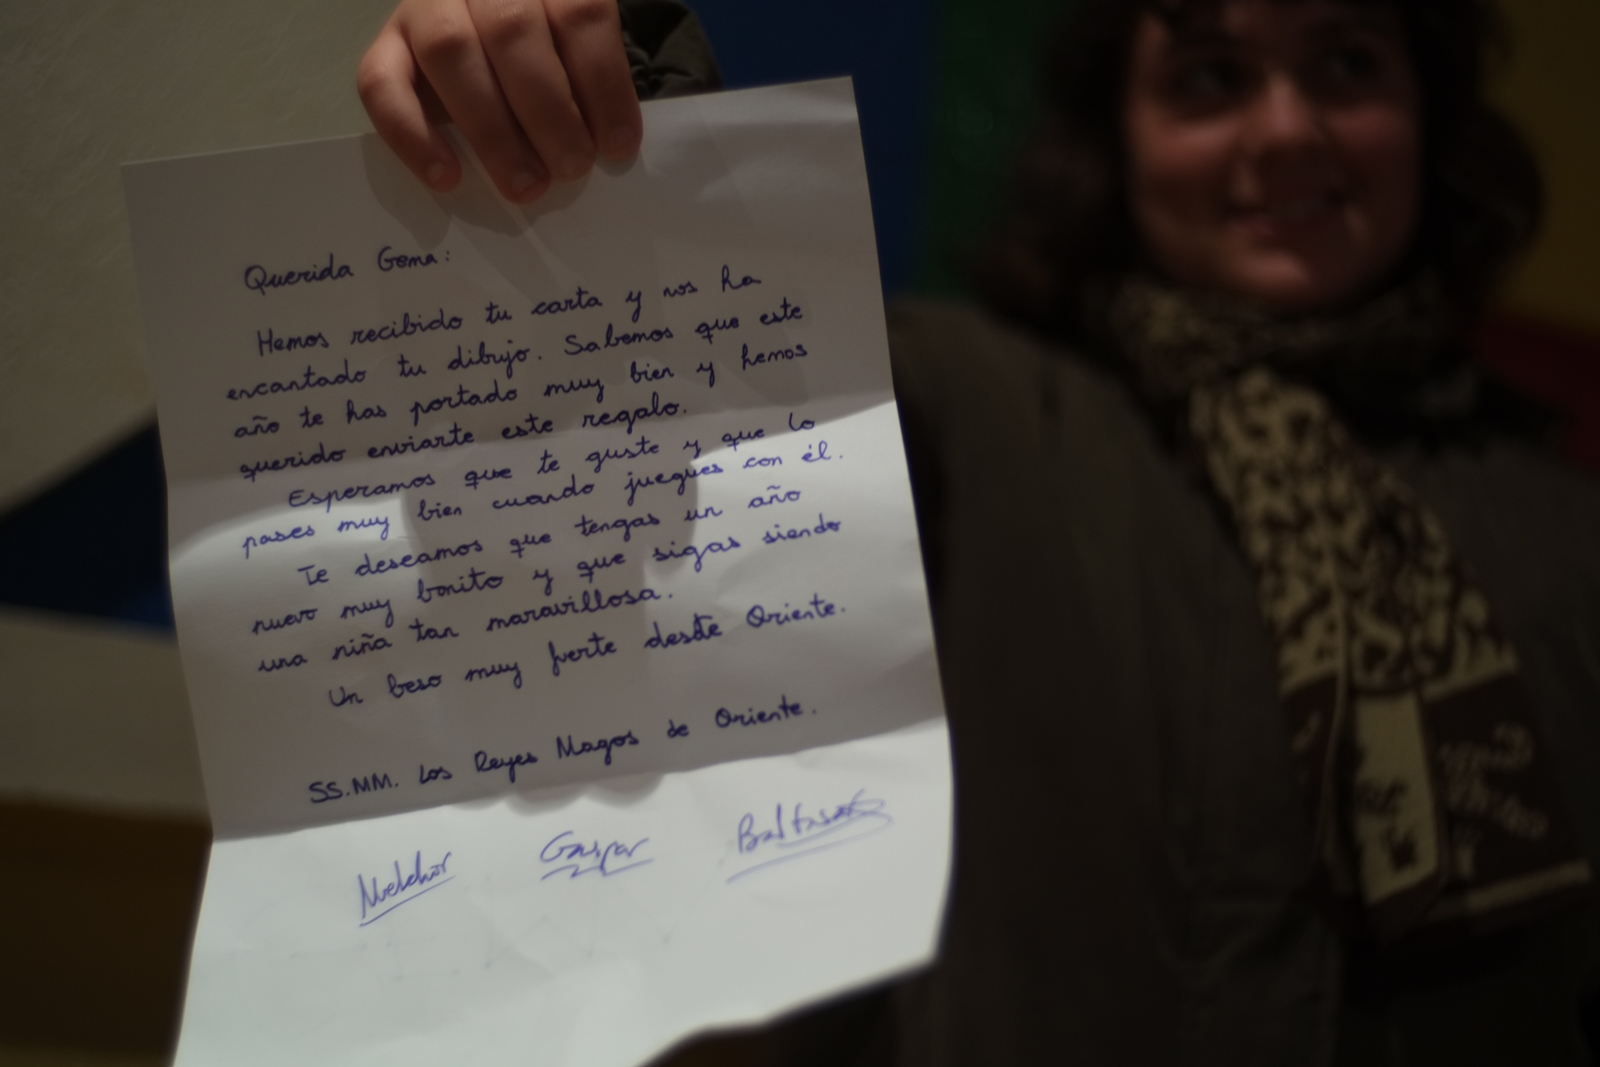 Querida Gema:
Hemos recibido tu carta y nos ha
encantado tu dibujo. Sabemos que este
año te has portado muy bien y hemos
querido enviarte este regalo.
Esperamos que te guste y que lo
pases muy bien cuando juegues con él.
Te deseamos que tengas un año
nuevo muy bonito y que sigas siendo
una niña tan maravillosa.
Un beso muy fuerte desde Oriente.
SS.MM. Los Reyes Magos de Oriente.
Melchor Gaspar Baltasar